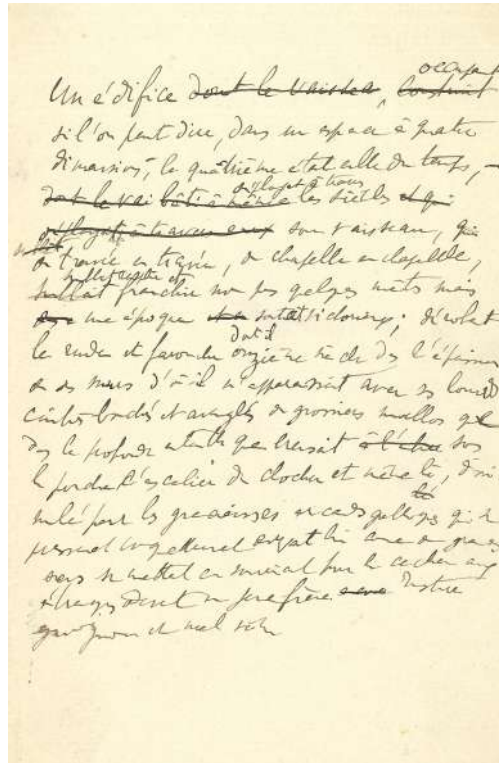 occupant
Un édifice dont le vaisseau, construit
si l'on peut dire, dans un espace à quatre
dimensions, la quatrième étant celle du temps, —
déployant à travers
dont le vai bâti à même les siècles et qui
déployait à travers eux son vaisseau, qui
de travée en travée, de chapelle en chapelle,
semblait franchir non pas quelques mètres mais
une époque
d'où il
le rude et farouche onzième siècle dans l'épaisseur
de ses murs d'où il n'apparaissait avec ses lourds
cintres bouchés et aveuglés de grossiers moellons que
la profonde entaille que creusait sous
le porche l'escalier du clocher et même là, dissi
mulé par les gracieuses arcades gothiques qui se
pressaient coquettement lui comme de grandes
sœurs se mettent en souriant pour le cacher aux
étrangers devant un jeune frère rustre
grognon et mal vêtu